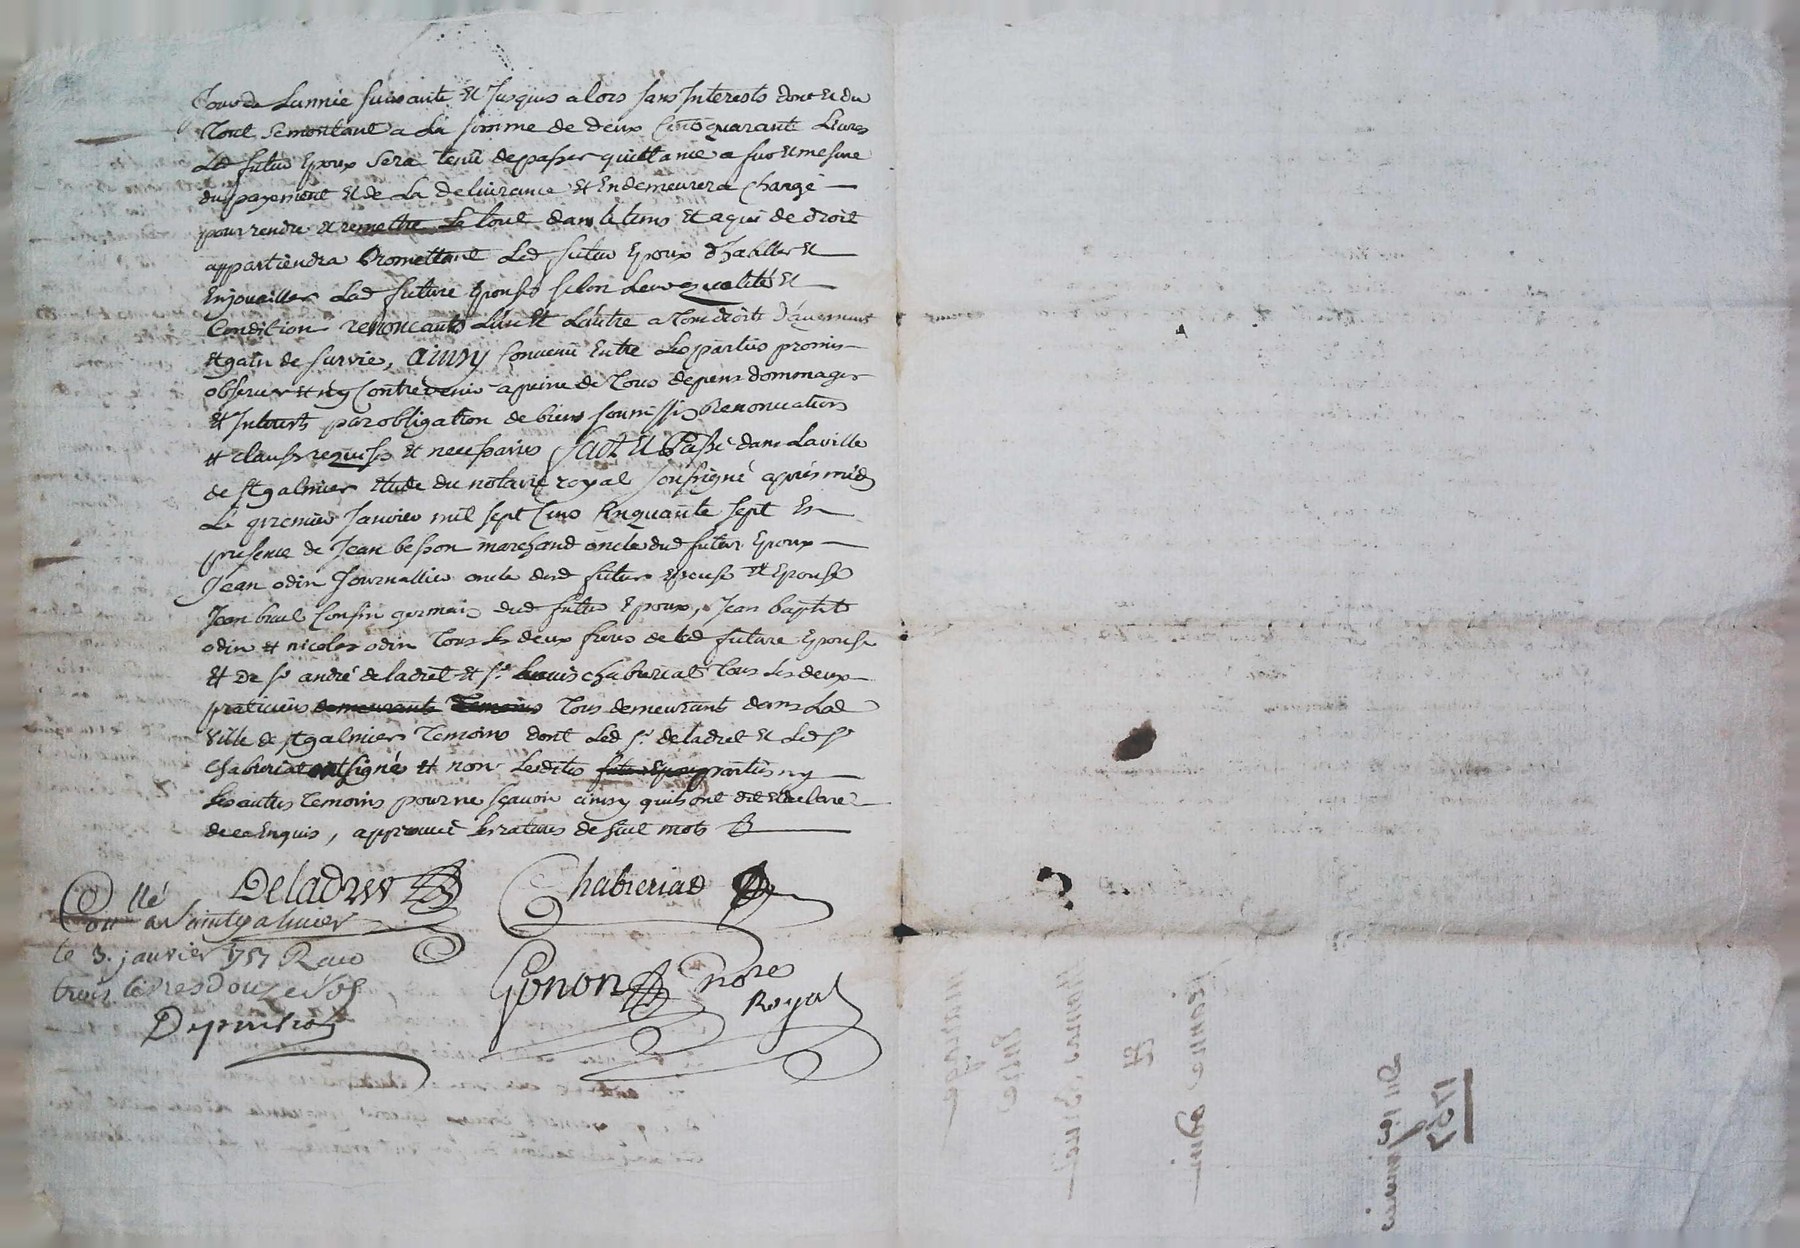 Jour de Lannée suivante Et Jusques alors sans Interests dont Et du
Tout se montant a La somme de deux Cents quarante Livres
Led futur Epoux sera tenu de passer quittance a fur et mesure
du payement Et de La delivrance Et En demeurera Chargé
pour rendre et remettre Le tout dans le tems Et a qui de droit
appartiendra Promettant Led futur Epoux d'habiller Et
Enjouailler Lad future Epouse selon Leurs qualités Et
Condition renoncants L'un Et Lautre a Tous droits d'augment
Et gain de survie, ainsy Convenu Entre Les parties promis
observer et n'y Contrevenir a peine de Tous depens dommages
Et Interests par obligation de biens soumissions Renonciations
et clauses requises Et necessaires fait Et Passé dans La ville
de St galmier Etude du notaire royal soussigné aprés midy
Le premier Janvier mil sept Cens Cinquante sept En
presence de Jean besson marchand oncle dud futur Epoux
Jean odin Journallier oncle de lad future Epouse
Jean bruel Cousin germain dud futur Epoux, Jean baptiste
odin et nicolas odin Tous Les deux freres de lad future Epouse
Et De Sr andré deladret Et Sr Louis chaberiat Tous Les deux
praticiens demeurants Temoins Tous demeurant dans Lad
ville de St galmier Temoins dont Led Sr deladret Et Led Sr
chaberiat ont signé Et non Lesdites parties ny
Les autres Temoins pour ne sçavoir ainsy quils ont dit Et declaré
de ce Enquis, approuvé Les ratures de huit mots
Deladret Chabreriad
Conllé
a Saint galmier
le 3. janvier 1757 Reçu
trois livres Douze Sols
Gonon no.re
Royal